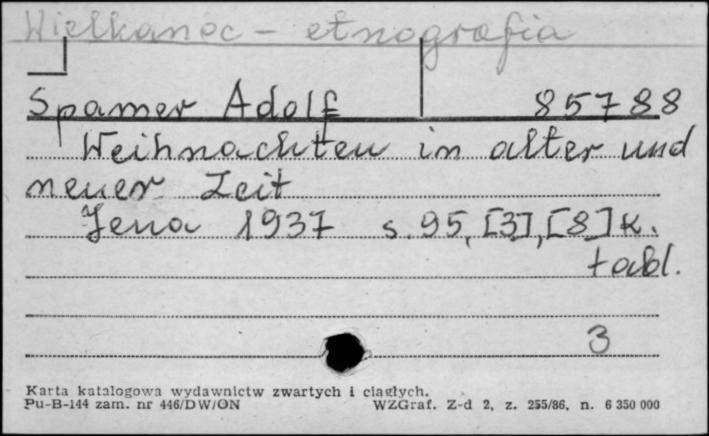 Wielkanoc - etnografia
Spamer Adolf 85788
Weihnachten in alter und
neuer Zeit
Jena 1937 s. 95, [3], [8] k.
tabl.
3
Karta katalogowa wydawnictw zwartych i ciągłych.
Pu-B-144 zam. nr 446/DW/ON WZGraf. Z-d 2, z. 255/86, n. 6 350 000